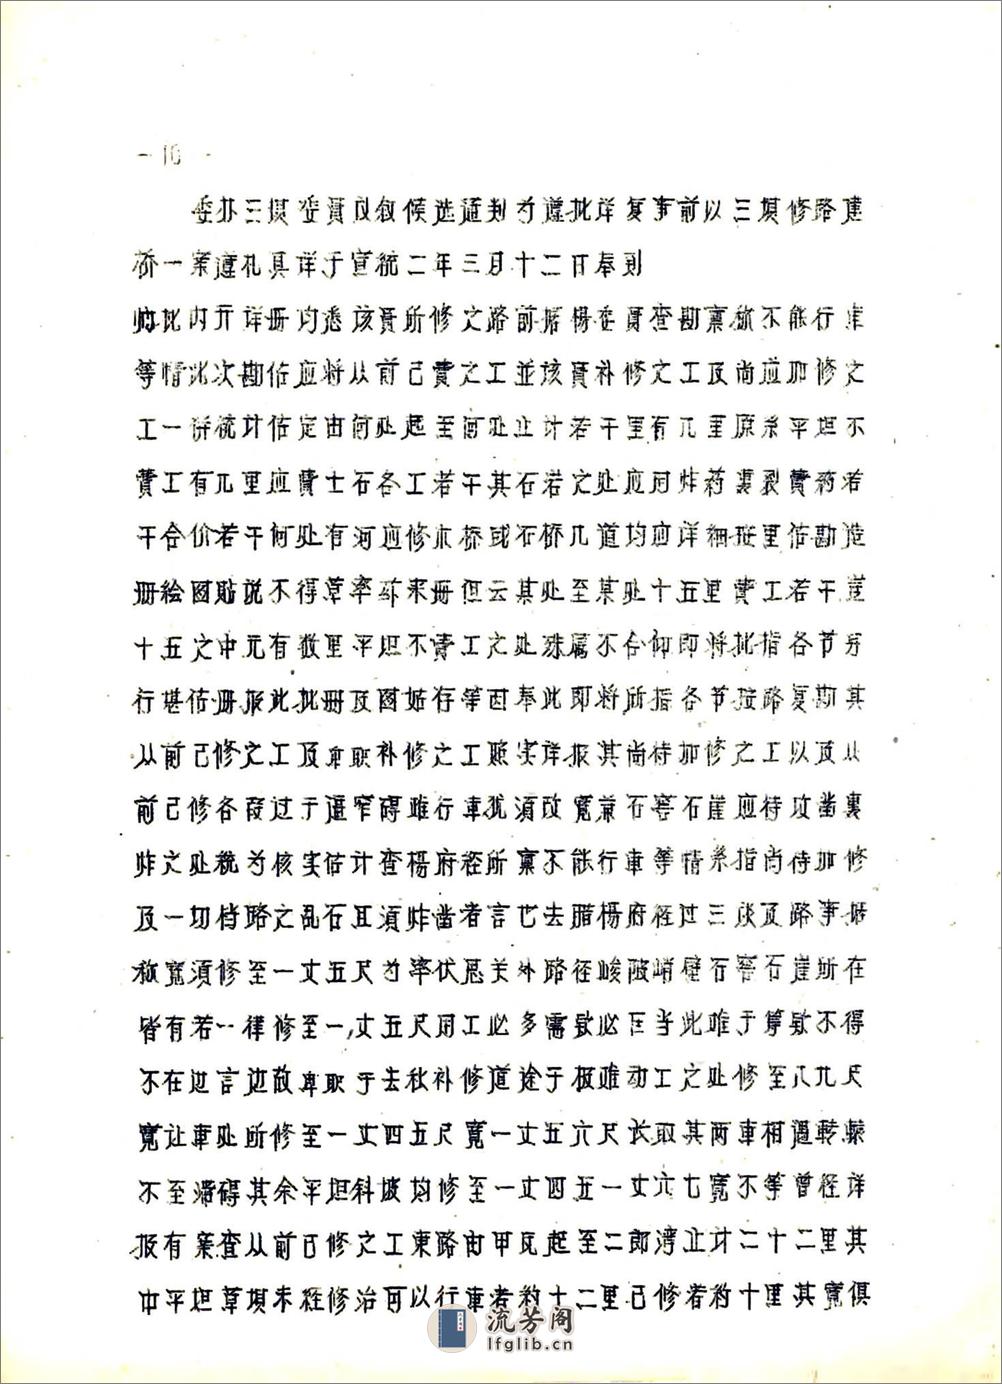 一10一
委办三坝委員仅叙候选通判为遵批详复事前以三坝修路建
桥一案遵札具详于宣统二年三月十二日奉到
帅批内开详册均悉该員所修之路前据楊委員查勘禀称不能行車
等情此次勘估应将从前己費之工並该員补修之工及尚应加修之
工一併統计估定由何处起至何处止计若干里有几里原系平坦不
費工有几里应費土石各工若干其石若之处应同炸葯裏裂費葯若
干合价若干何处有河应修木桥或石桥几道均应详細按里估勘造
册绘图贴说不得草率却来册但云某处至某处十五里費工若干豈
十五之中元有数里平坦不費工之处殊属不合仰即将批指各节另
行堪估册报此批册及图姑存等因奉此即将所指各节按路复勘其
从前己修之工及卑职补修之工照实详报其尚待加修之工以及从
前己修各段过于逼窄碍难行車犹須改寬兼石窖石崖应待攻凿裏
炸之处統为核实估计查楊府经所禀不能行車等情系指尚待加修
及一切档路之乱石且須炸凿者言也去腊楊府经过三谈及路事据
称寬須修至一丈五尺为率伏思关外路径峻陂峭壁石窖石崖所在
皆有若一律修至一丈五尺用工必多需款必巨当此难于筹款不得
不在边言边故卑职于去秋补修道途于极难动工之处修至八九尺
寬让車处所修至一丈四五尺寬一丈五六尺长取其两車相遇轉躲
不至滞碍其余平坦科坡均修至一丈四五一丈六七寬不等曾经详
报有案查从前己修之工東路由甲瓦起至二郎湾止计二十二里其
中平坦草坝未经修治可以行車者約十二里己修者約十里其寬俱
流芳阁
lfglib.cn